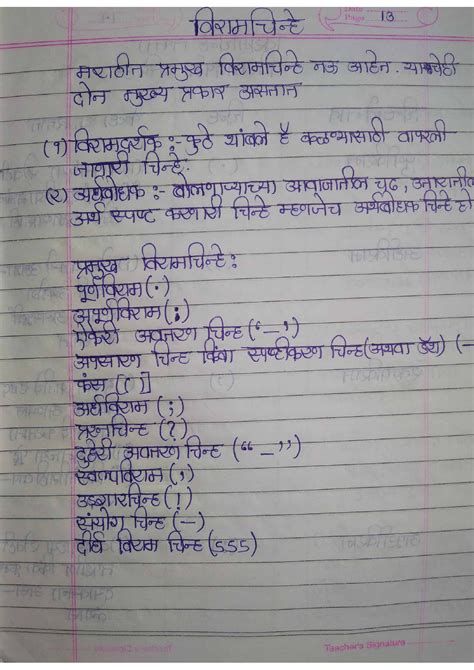 Date
Page 13
विरामचिन्हे
मराठीत प्रमुख विरामचिन्हे नऊ आहेत. याचेही
दोन मुख्य प्रकार असतात
(१) विरामदर्शक :- कुठे थांबले हे कळण्यासाठी वापरली
जाणारी चिन्हे.
(२) अर्थबोधक :- बोलणाऱ्याच्या आवाजातील चढ, उतारातील
अर्थ स्पष्ट करणारी चिन्हे म्हणजेच अर्थबोधक चिन्हे हो
प्रमुख विरामचिन्हे:
पूर्णविराम (.)
अपूर्णविराम (:)
ऐकेरी अवतरण चिन्ह (‘—’)
अपसारण चिन्ह किंवा स्पष्टीकरण चिन्ह(अथवा डॅश) (—
कंस [( )]
अर्धविराम (;)
प्रश्नचिन्ह (?)
दुहेरी अवतरण चिन्ह (“ — ”)
स्वल्पविराम (,)
उद्गारचिन्ह (!)
संयोग चिन्ह (—)
दीर्घ विराम चिन्ह (ऽऽऽ)
Teacher's Signature